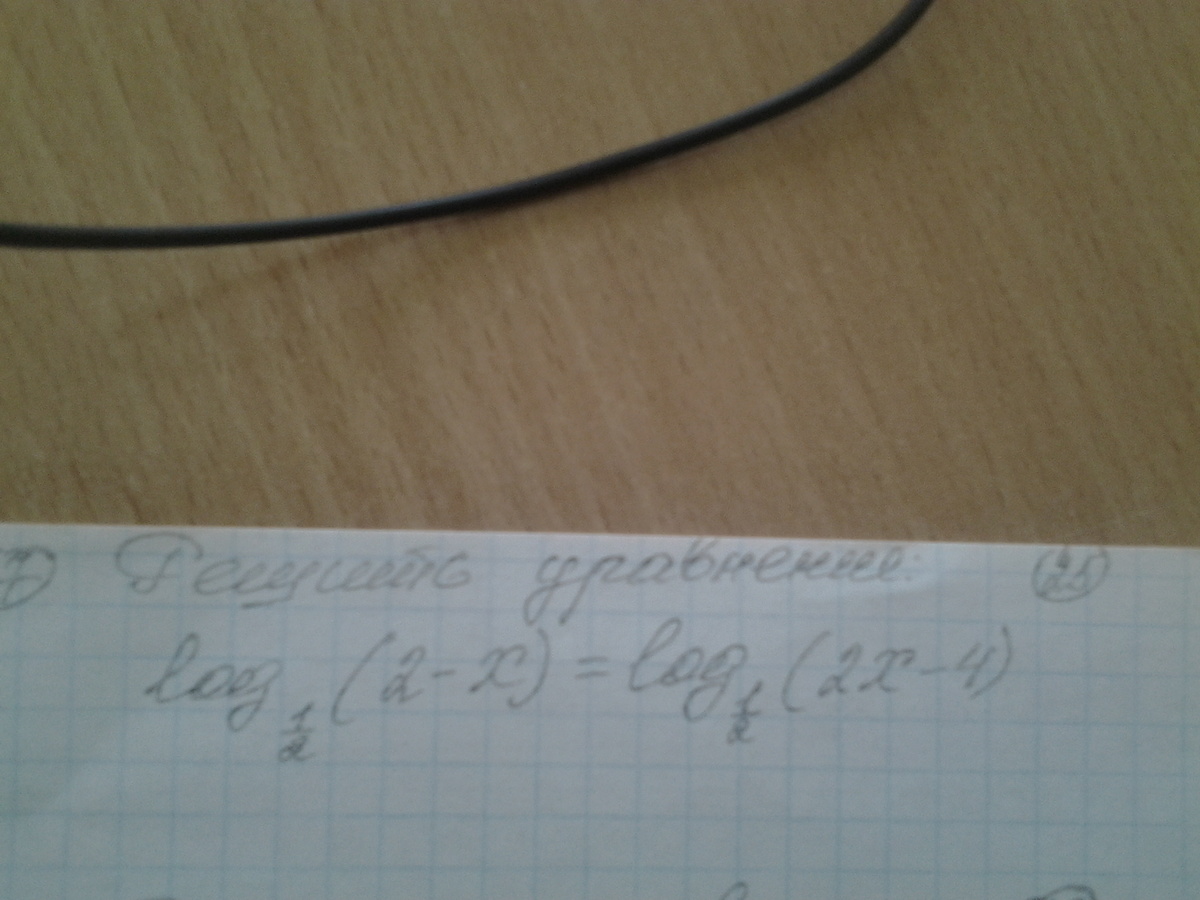 7) Решить уравнение:
log 1/2 (2-x) = log 1/2 (2x-4)